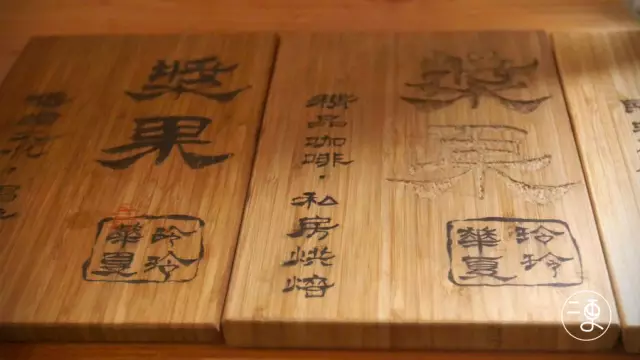 漿果
玲玲
華夏
漿果
精品咖啡·私房烘焙
玲玲
華夏
二更